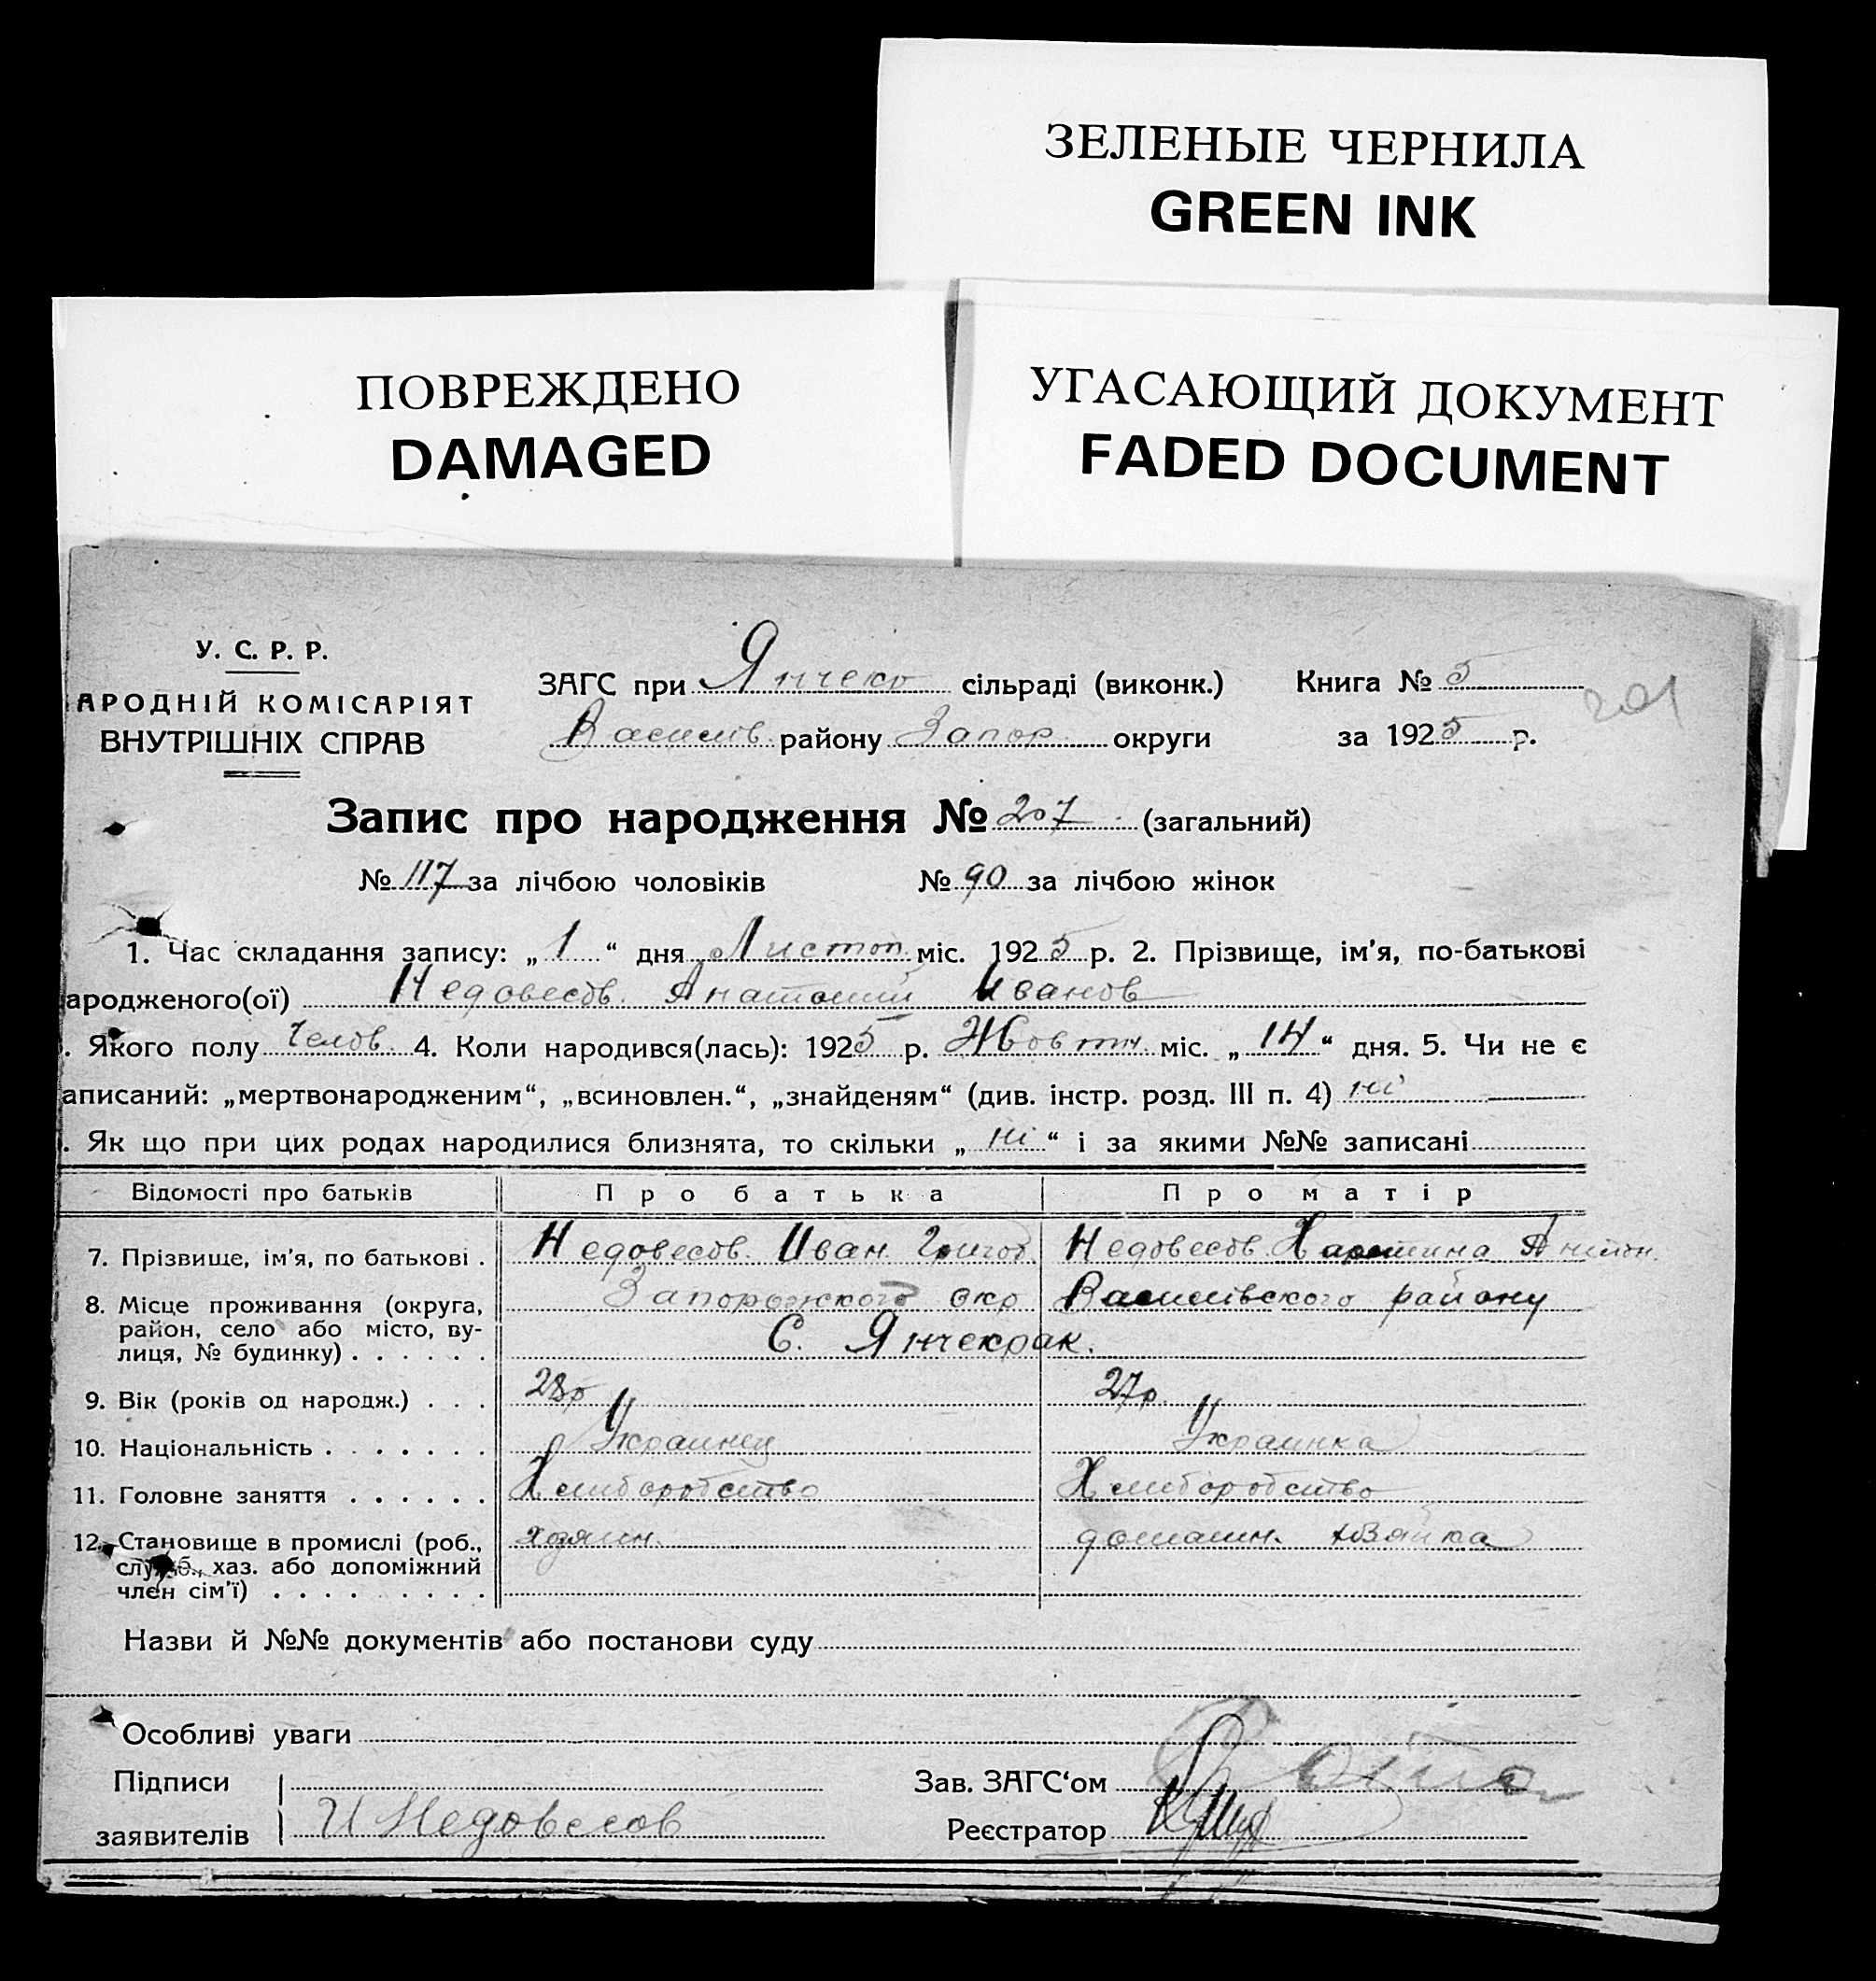 ЗЕЛЕНЫЕ ЧЕРНИЛА
GREEN INK
ПОВРЕЖДЕНО
DAMAGED
УГАСАЮЩИЙ ДОКУМЕНТ
FADED DOCUMENT
У. С. Р. Р.
АРОДНІЙ КОМІСАРІЯТ
ВНУТРІШНІХ СПРАВ
ЗАГС при Янчекр сільраді (виконк.) Книга № 5
201
Василів. району Запор. округи за 1925 р.
Запис про народження № 207 (загальний)
№ 117 за лічбою чоловіків № 90 за лічбою жінок
1. Час складання запису: „1“ дня Листоп. міс. 1925 р. 2. Прізвище, ім'я, по-батькові
ародженого(ої) Недовесов. Анатолий Иванов
. Якого полу Челов. 4. Коли народився(лась): 1925 р. Жовтн. міс. „14“ дня. 5. Чи не є
аписаний: „мертвонародженим“, „всиновлен.“, „знайденям“ (див. інстр. розд. III п. 4) ні
. Як що при цих родах народилися близнята, то скільки „ні“ і за якими №№ записані
Відомості про батьків Про батька Про матір
7. Прізвище, ім'я, по батькові . Недовесов. Иван. Григор. Недовесов. Антон.
8. Місце проживання (округа, район, село або місто, вулиця, № будинку) . . . . . . Запорожского окр Василівского району
С. Янчекрак.
9. Вік (років од народж.) . . . 28р 27р.
10. Національність . . . . . . . Украинец Украинка
11. Головне заняття . . . . . . Хлиборобство Хлиборобство
12. Становище в промислі (роб., служб., хаз. або допоміжний член сім'ї) . . . . . . . . . хозяин. домашн. хозяйка
Назви й №№ документів або постанови суду
Особливі уваги
Підписи
заявителів И Недовесов
Зав. ЗАГС‘ом
Реєстратор